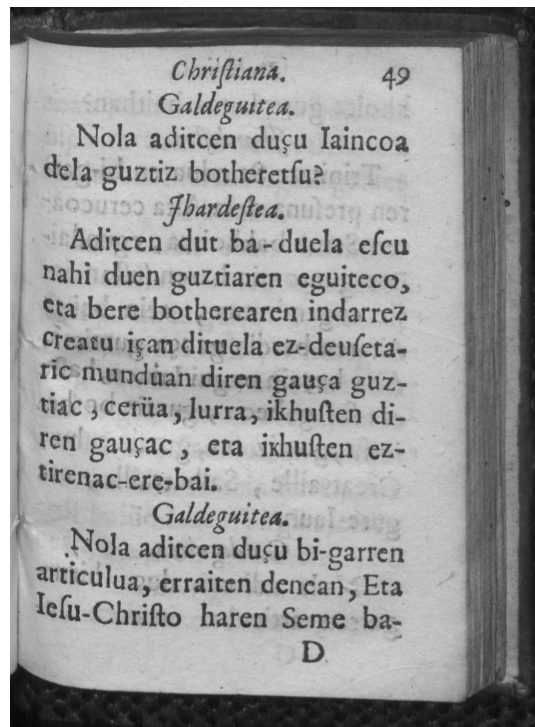 Chriſtiana. 49
Galdeguitea.
Nola aditcen duçu Iaincoa
dela guztiz botheretſu?
Jhardeſtea.
Aditcen dut ba-duela eſcu
nahi duen guztiaren eguiteco,
eta bere botherearen indarrez
creatu içan dituela ez-deuſeta-
ric munduan diren gauça guz-
tiac, cerüa, lurra, ikhuſten di-
ren gauçac, eta ikhuſten ez-
tirenac-ere-bai.
Galdeguitea.
Nola aditcen duçu bi-garren
articulua, erraiten denean, Eta
Ieſu-Chriſto haren Seme ba-
D